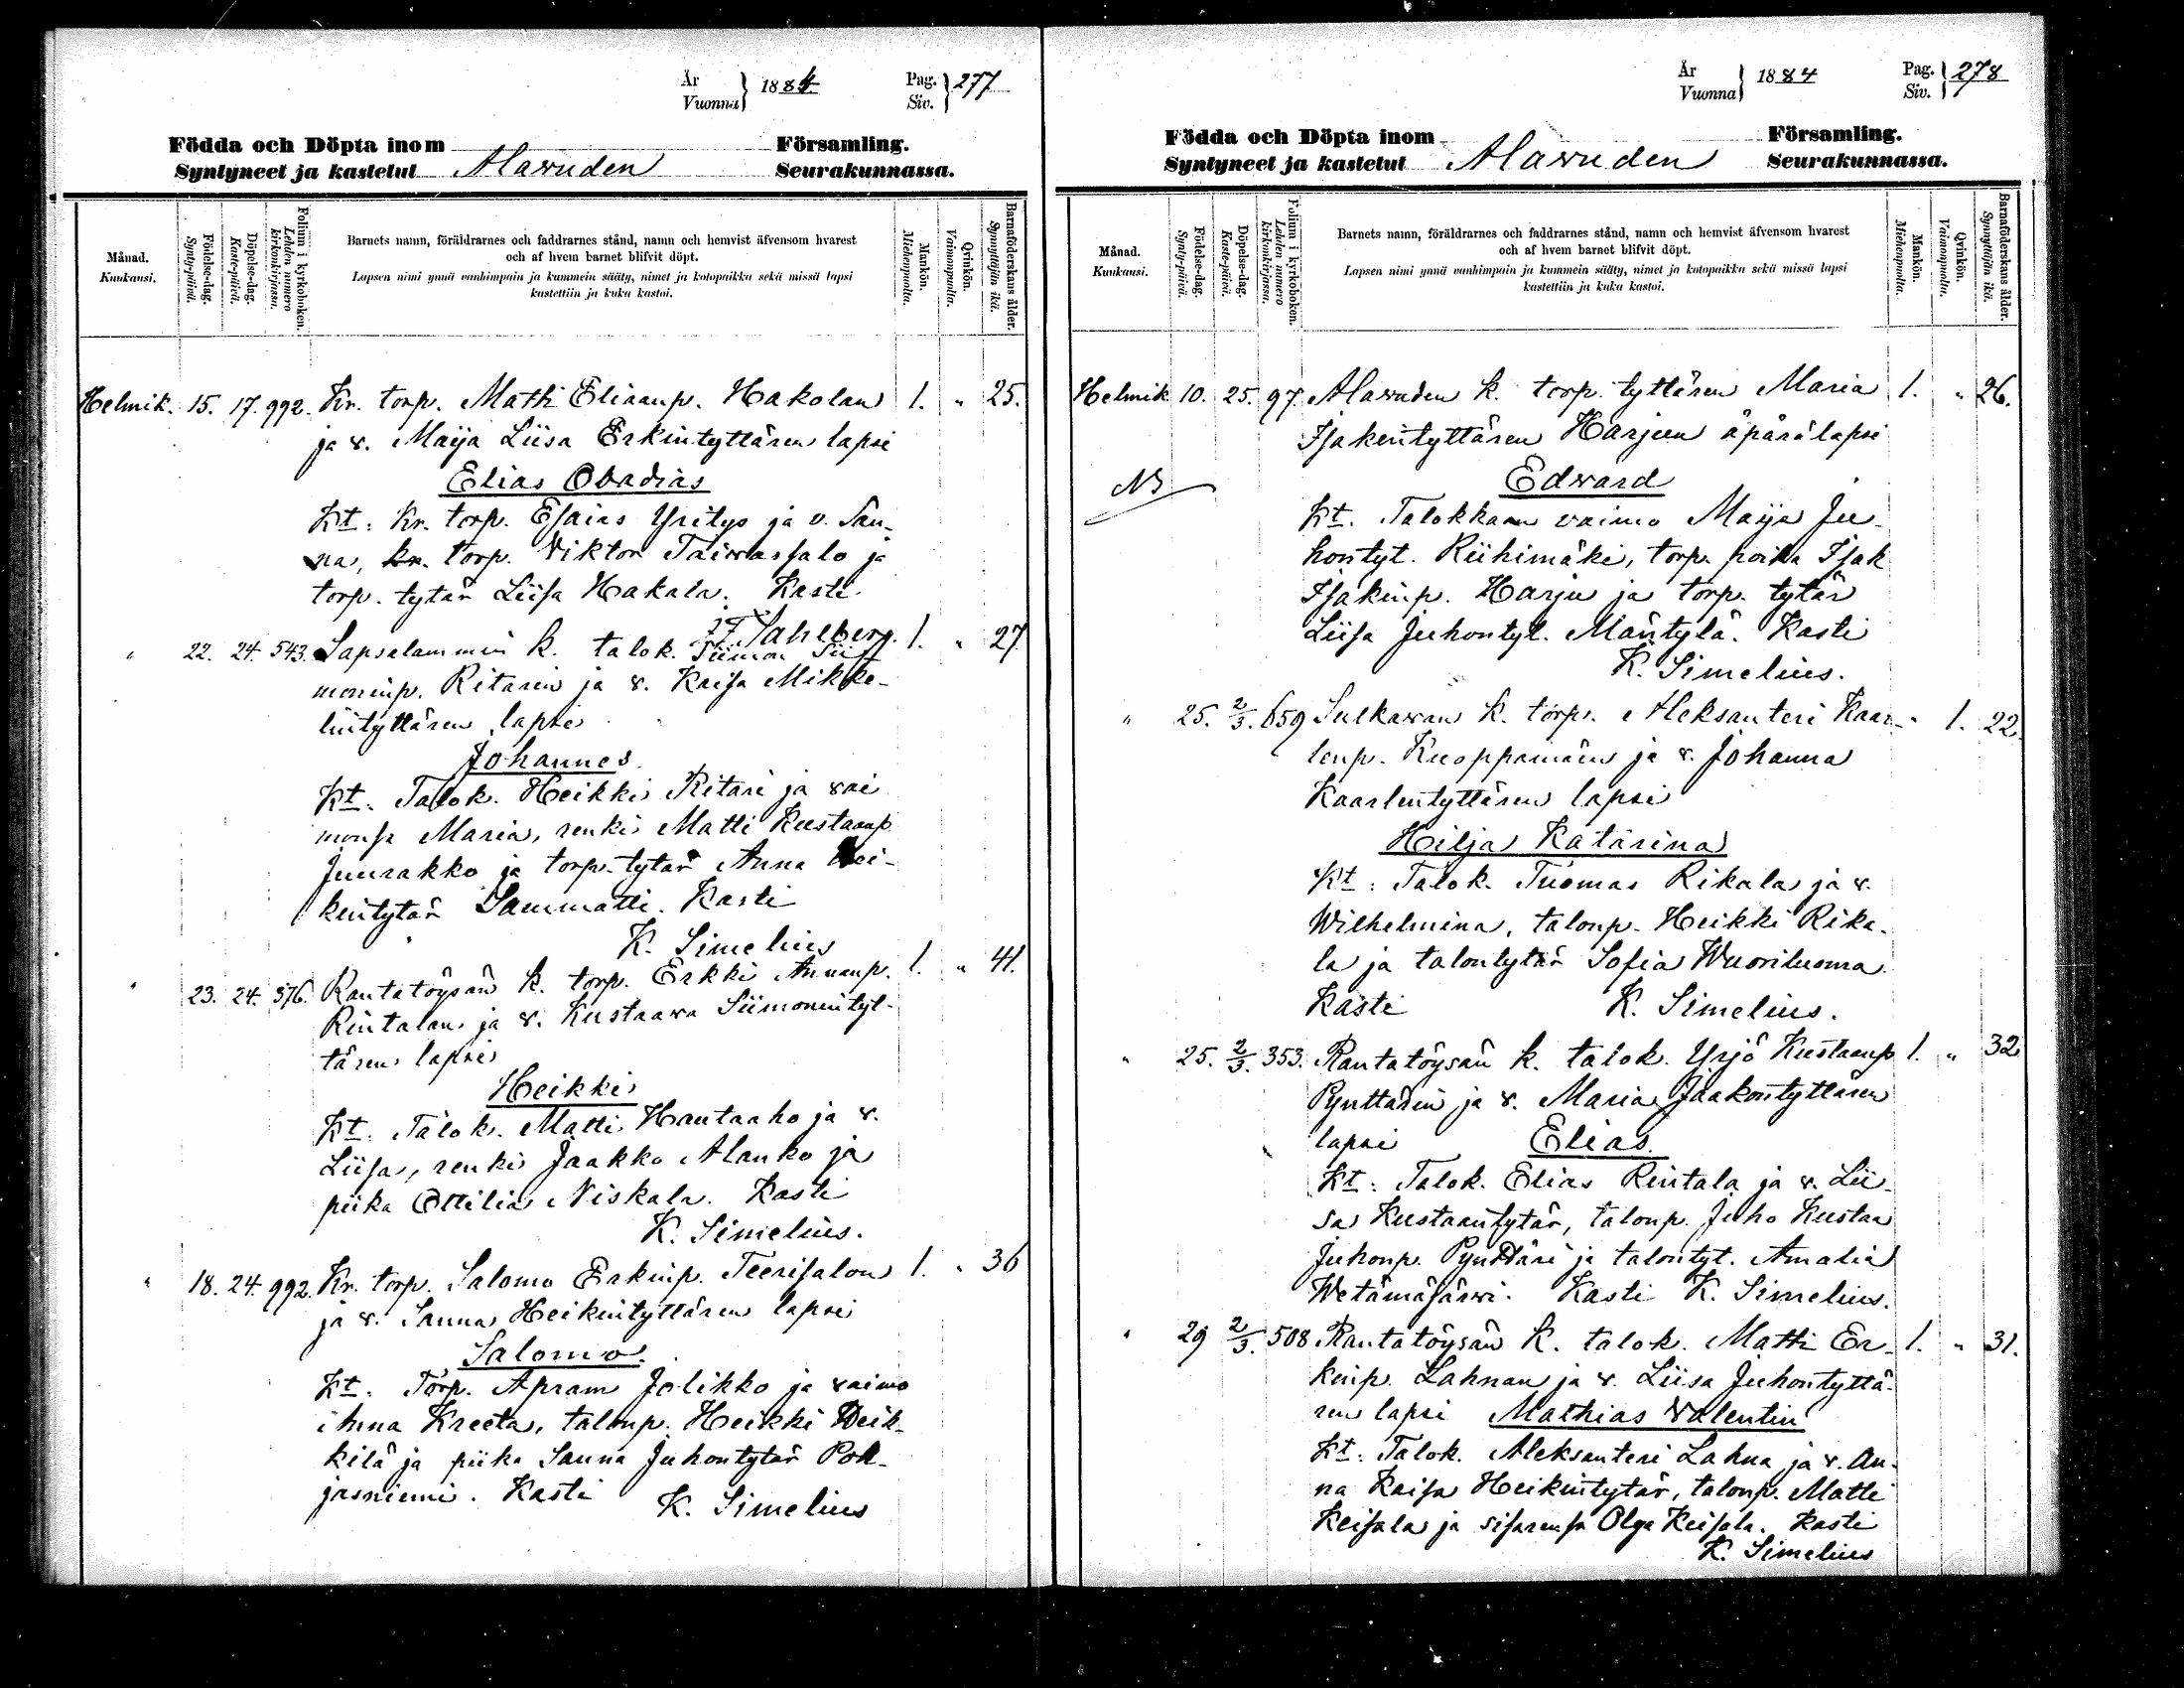 År
Vuonna
1884
Pag.
Siv.
277
Födda och Döpta inom
Församling.
Syntyneet ja kastetut Alavuden Seurakunnassa.
Månad.
Kuukausi.
Födelse-dag.
Synty-päivä.
Döpelse-dag.
Kaste-päivä.
Folium i kyrkoboken.
Lehden numero kirkonkirjassa.
Barnets namn, föräldrarnes och faddrarnes stånd, namn och hemvist äfvensom hvarest
och af hvem barnet blifvit döpt.
Lapsen nimi ynnä vanhimpain ja kummein sääty, nimet ja kotopaikka sekä missä lapsi
kastettiin ja kuka kastoi.
Mankön.
Miehenpuolta.
Qvinkön.
Vaimonpuolta.
Barnaföderskans ålder.
Synnyttäjän ikä.
Helmik. 15. 17. 992. Kr. torp. Matti Eliaanp. Hakolan 1. " 25.
ja v. Maija Liisa Erkintyttären lapsi
Elias Obadias
Kt: Kr. torp. Esaias Yritys ja v. San-
na, kr. torp. Viktor Taivassalo ja
torp. tytär Liisa Hakala. Kasti
Sahlberg.
" 22. 24. 543. Sapsalammin k. talok. Siimon Sii- 1. " 27.
moninp. Ritarin ja v. Kaisa Mikke-
lintyttären lapsi
Johannes.
Kt: Talok. Heikki Ritari ja vai
monsa Maria, renki Matti Kustaanp
Juurakko ja torp. tytär Anna Hei-
kintytär Sammatti. Kasti
K. Simelius
" 23. 24. 376. Rantatöysän k. torp. Erkki Annanp. 1. " 41.
Rintalan ja v. Kustaava Siimonintyt-
tären lapsi
Heikki
Kt: Talok. Matti Hautaaho ja v.
Liisa, renki Jaakko Alanko ja
piika Ottilia Niskala. Kasti
K. Simelius.
" 18. 24. 992. Kr. torp. Salomo Erkinp. Teerisalon 1. " 36
ja v. Sanna Heikintyttären lapsi
Salomo.
Kt: Torp. Apram Jolikko ja vaimo
Anna Kreeta, talonp. Heikki Heik-
kilä ja piika Sanna Juhontytär Poh-
jasniemi. Kasti
K. Simelius
År
Vuonna
1884
Pag.
Siv.
278
Födda och Döpta inom
Församling.
Syntyneet ja kastetut Alavuden Seurakunnassa.
Månad.
Kuukausi.
Födelse-dag.
Synty-päivä.
Döpelse-dag.
Kaste-päivä.
Folium i kyrkoboken.
Lehden numero kirkonkirjassa.
Barnets namn, föräldrarnes och faddrarnes stånd, namn och hemvist äfvensom hvarest
och af hvem barnet blifvit döpt.
Lapsen nimi ynnä vanhimpain ja kummein sääty, nimet ja kotopaikka sekä missä lapsi
kastettiin ja kuka kastoi.
Mankön.
Miehenpuolta.
Qvinkön.
Vaimonpuolta.
Barnaföderskans ålder.
Synnyttäjän ikä.
Helmik 10. 25. 97. Alavuden k. torp. tyttären Maria 1. " 26.
Isakintyttären Harjun äpärälapsi
NB
Edward
Kt. Talokkaan vaimo Maija Ju-
hontyt. Riihimäki, torp. poika Isak
Isakinp. Harju ja torp. tytär
Liisa Juhontyt. Mäntylä. Kasti
K. Simelius.
" 25. 2/3. 659 Sulkavan k. torp. Aleksanteri Kaar- " 1. 22.
lenp. Kuoppamäen ja v. Johanna
Kaarlentyttären lapsi
Hilja Katarina
Kt: Talok. Tuomas Rikala ja v.
Wilhelmina, talonp. Heikki Rika-
la ja talontytär Sofia Wuoriluoma.
Kasti K. Simelius.
" 25. 2/3. 353. Rantatöysän k. talok. Yrjö Kustaanp 1. " 32
Pynttärin ja v. Maria Jaakontyttären
lapsi Elias.
Kt: Talok. Elias Rintala ja v. Lii-
sa Kustaantytär, talonp. Juho Kustaa
Juhonp. Pynttäri ja talontyt. Amalia
Wetämäjärvi. Kasti K. Simelius.
" 29 2/3. 508 Rantatöysän k. talok. Matti Er- 1. " 31.
kinp. Lahnan ja v. Liisa Juhontyttä-
ren lapsi Mathias Valentin
Kt: Talok. Aleksanteri Lahna ja v. An-
na Kaisa Heikintytär, talonp. Matti
Keisala ja sisarensa Olga Keisala. Kasti
K. Simelius